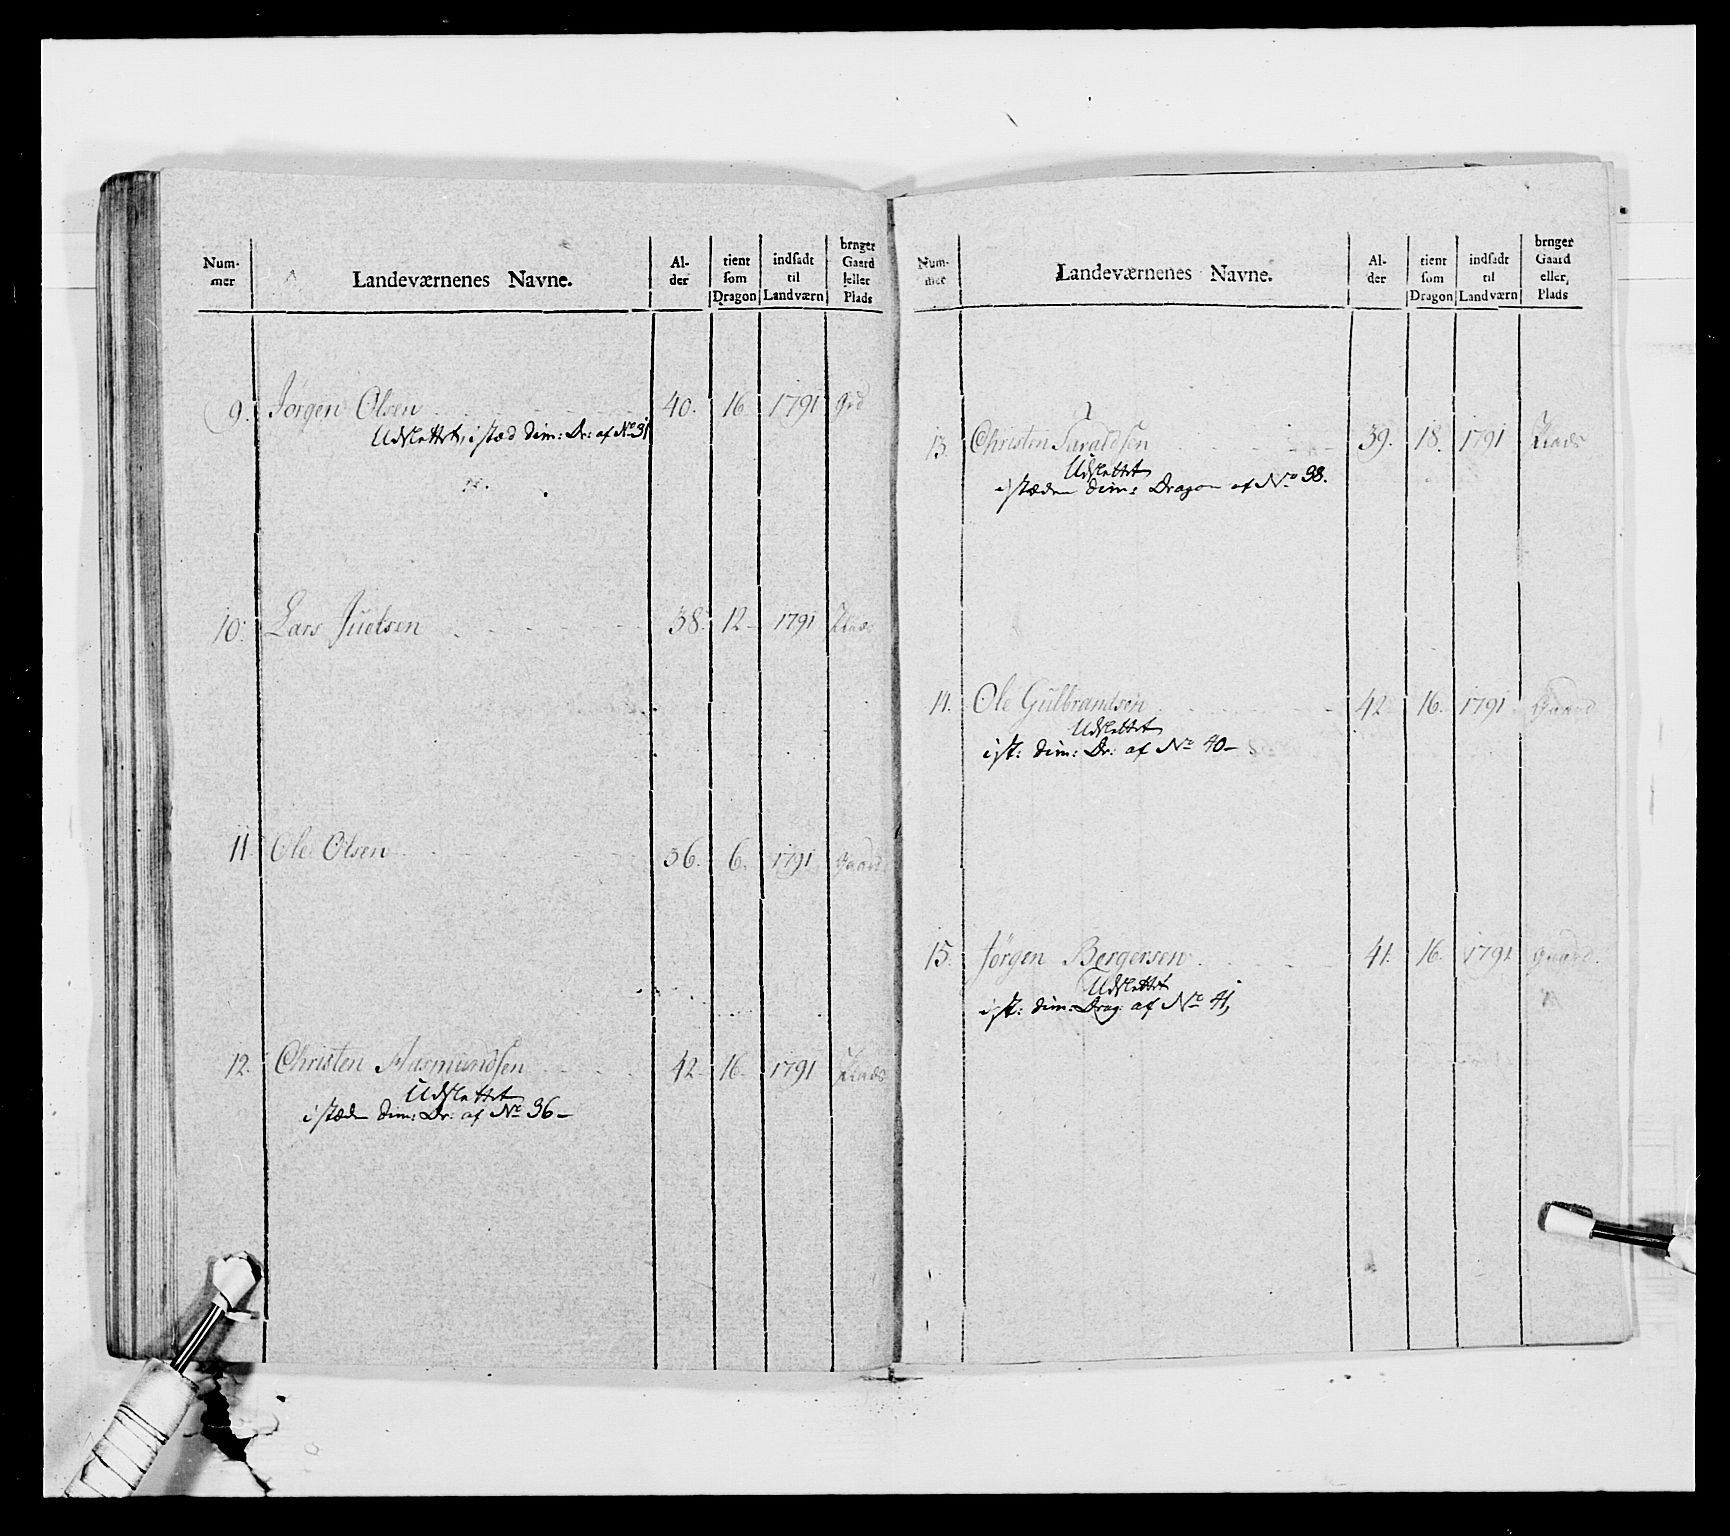 Num-
mer
Landeværnenes Navne.
Al-
der
tient
som
Dragon
indsadt
til
Landværn
brnger
Gaard
eller
Plads
9. Jørgen Olsen 40. 16. 1791 Grd
Udslettet, i stæd dim: Dr: af No 31
10. Lars Juelsen 38. 12 1791 Plads
11 Ole Olsen 36. 6. 1791 Gaard
12. Christen Asmundsen 42 16. 1791 Plads
Udslettet
i stæden dim: Dr: af No 36 -
Num-
mer
Landeværnenes Navne.
Al-
der
tient
som
Dragon
indsadt
til
Landværn
brnger
Gaard
eller,
Plads
13. Christen Taraldsen 39. 18. 1791 Plads
Udslettet
i stæden dim: Dragon af No 38.
14. Ole Gulbrandsen 42 16. 1791 Gaard
Udslettet
i st: dim: Dr: af No 40 -
15. Jørgen Bergersen 41. 16. 1791 Gaard.
Udslettet
i st: dim: Drag: af No 41,